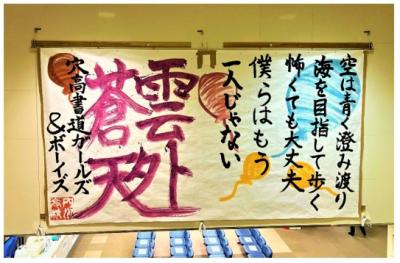 空は青く澄み渡り
海を目指して歩く
怖くても大丈夫
僕らはもう
一人じゃない
雲外
蒼天
穴高書道ガールズ
&ボーイズ